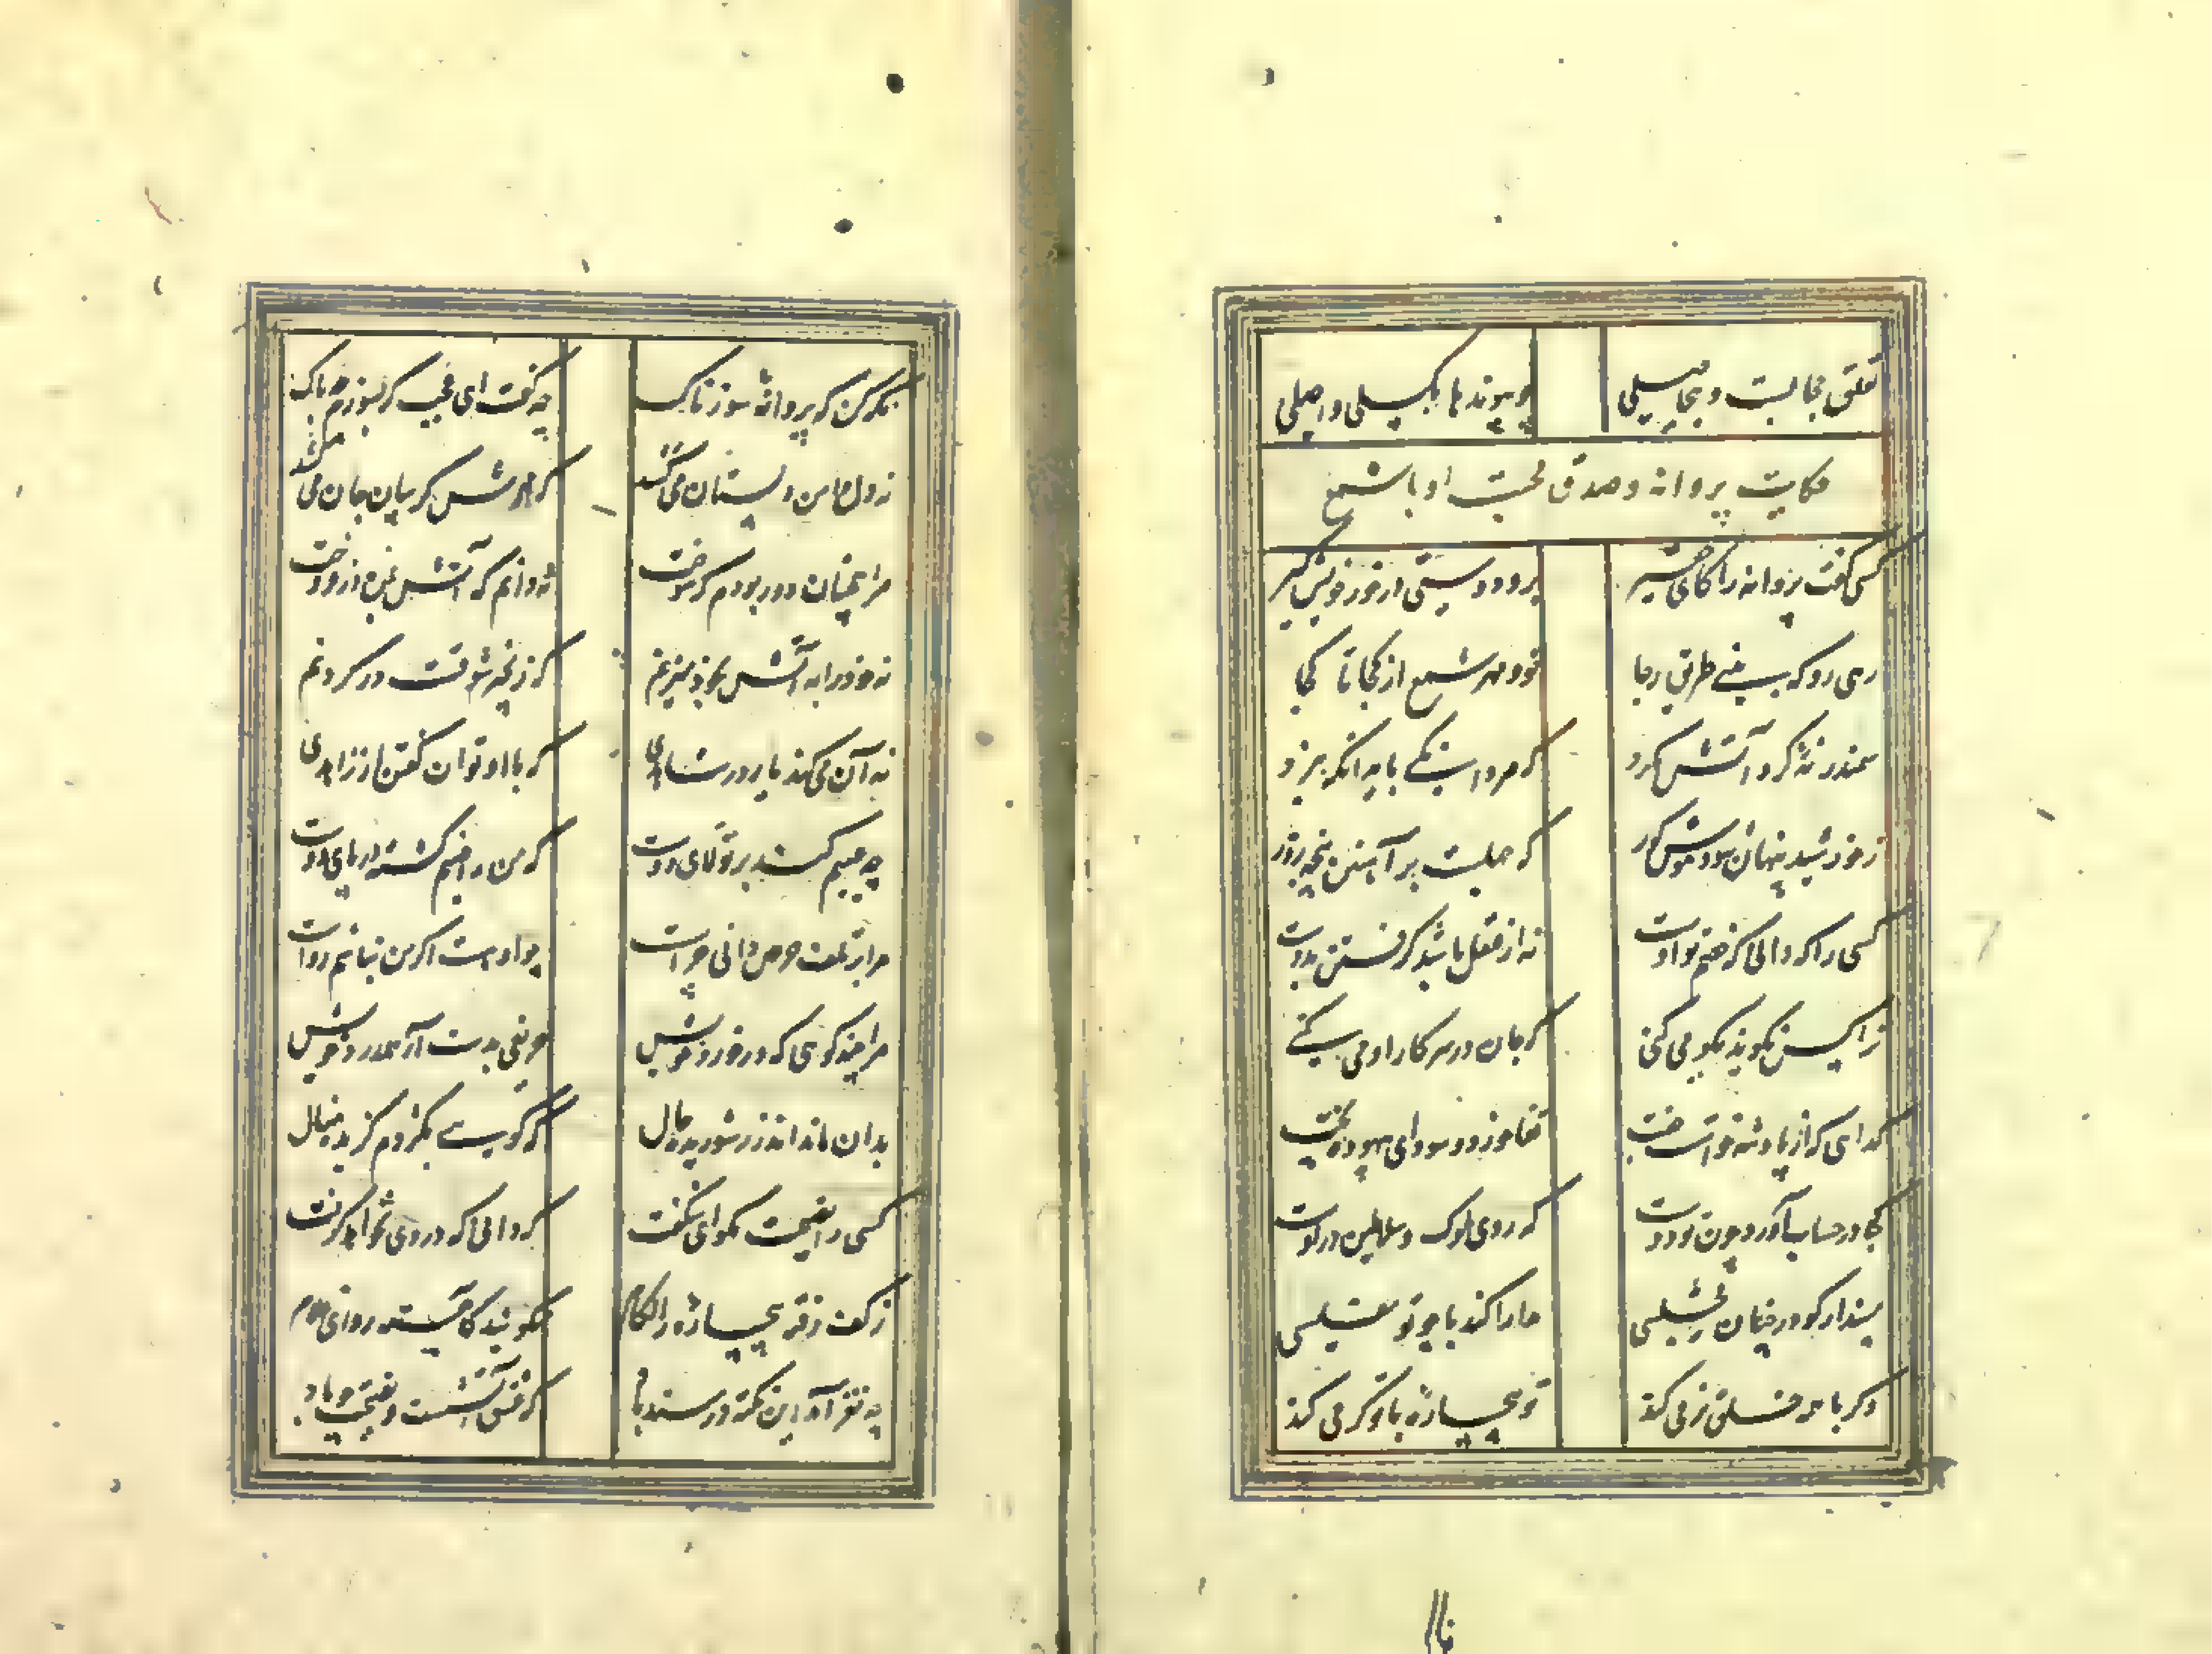 تعلق حجابست و بیحاصلی چو پیوندها بگسلی واصلی
حکایت پروانه و صدق محبت او با شمع
کسی گفت پروانه را کای حقیر برو دوستی در خور خویش گیر
رهی رو که بینی طریق رجا تو و مهر شمع از کجا تا کجا
سمندر نه گرد آتش مگرد که مردانگی باید آنگه نبرد
ز خورشید پنهان شود موش کور که جهلست بر آهنین پنجه زور
کسی را که دانی که خصم تو اوست نه از عقل باشد گرفتن بدوست
ترا کس نگوید نکو می کنی که جان در سر کار او می کنی
گدای که از پادشه خواست دخت قفا خورد و سودای بیهوده پخت
کجا در حساب آورد چون تو دوست که روی ملوک و سلاطین دروست
مپندار کو در چنان مجلسی مدارا کند با چو تو مفلسی
وگر با همه خلق نرمی کند تو بیچاره با تو گرمی کند
نگه کن که پروانه سوزناک چه گفت ای عجب گر بسوزم چه باک
نه دل دامن دلستان می کشد که مهرش گریبان جان می کشد
مرا همچنان دور بودم که سوخت نه این دم که آتش بمن در فروخت
نه خود را به آتش بخود میزنم که زنجیر شوقست در گردنم
نه آن می کند یار در شاهدی که با او توان گفتن از زاهدی
چه عیبم کنند بر تولای دوست که من راضیم کشته در پای دوست
مرا بر تلف حرص دانی چراست چو او هست اگر من نباشم رواست
مرا چند گوی که در خورد خویش حریفی بدست آر همدرد خویش
بدان ماند اندرز شوریده حال که گویی بکژدم گزیده منال
کسی را نصیحت مگو ای شگفت که دانی که در وی نخواهد گرفت
ز کف رفته بیچاره را لگام نگویند کاهسته ران ای غلام
چه نغز آمد این نکته در سندباد که عشق آتشست و نصیحت چو باد